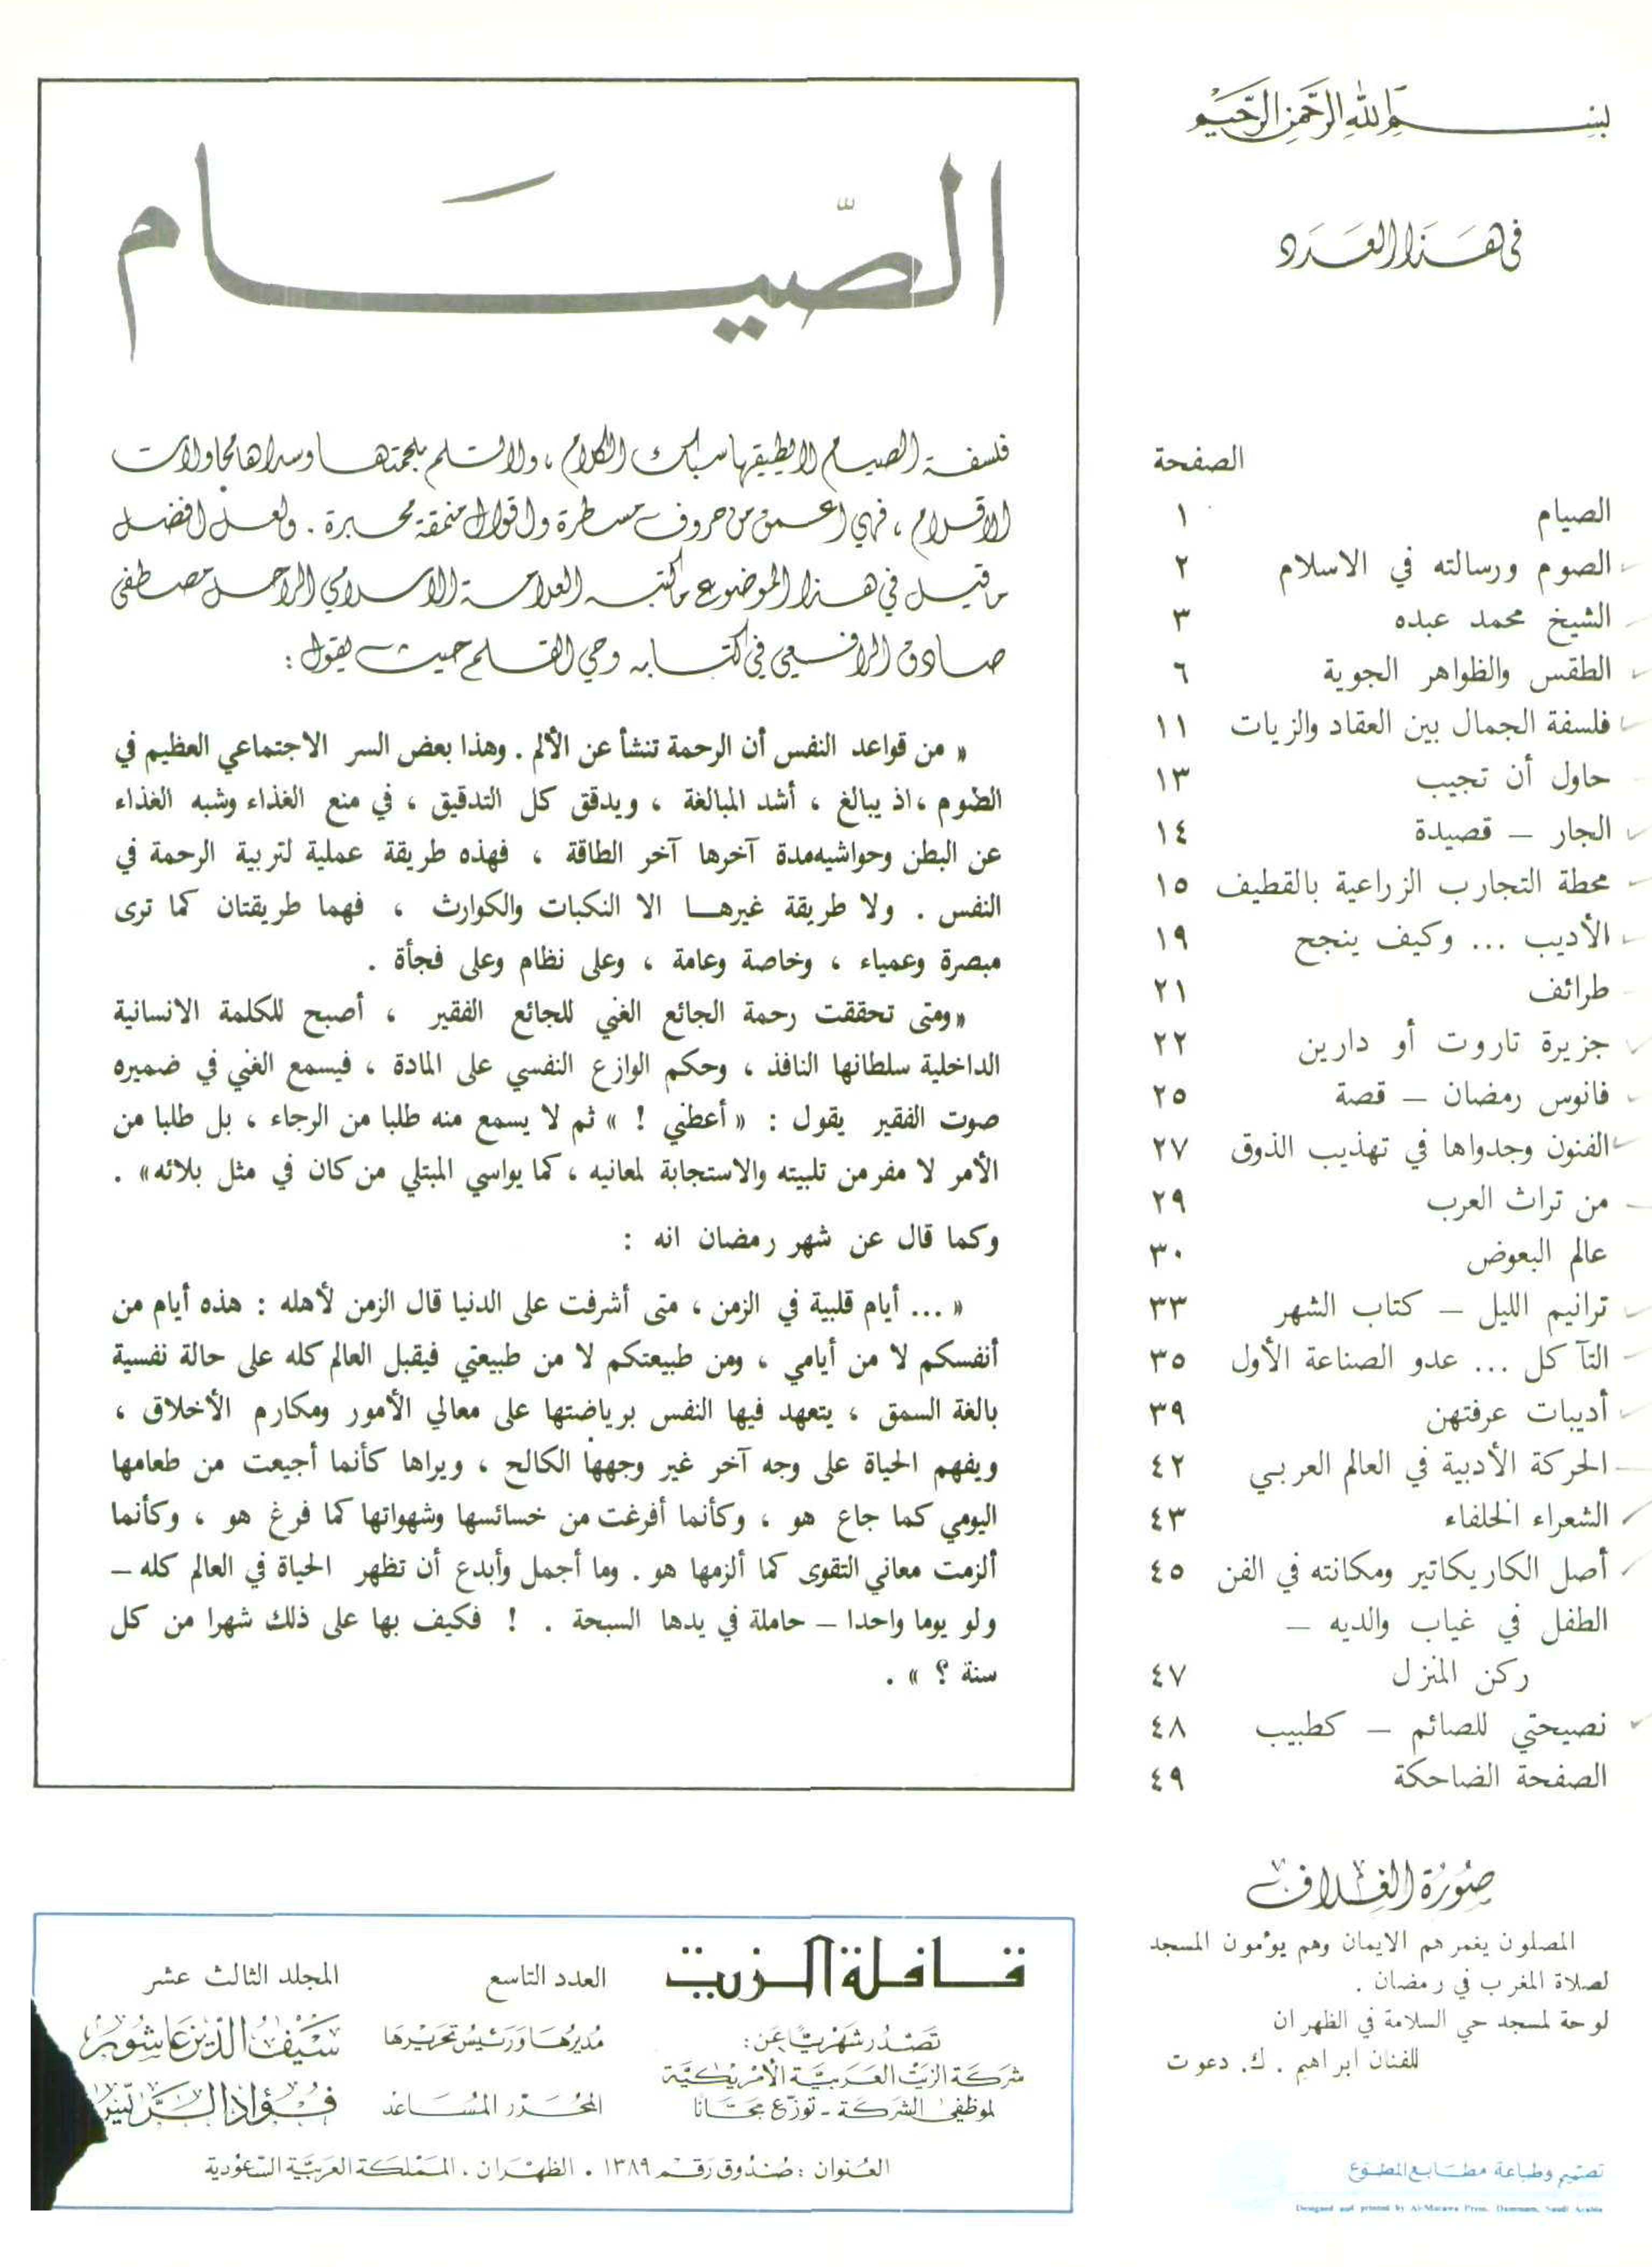 بسم الله الرحمن الرحيم
في هذا العدد
الصفحة
الصيام ١
الصوم ورسالته في الاسلام ٢
الشيخ محمد عبده ٣
الطقس والظواهر الجوية ٦
فلسفة الجمال بين العقاد والزيات ١١
حاول أن تجيب ١٣
الجار – قصيدة ١٤
محطة التجارب الزراعية بالقطيف ١٥
الأديب ... وكيف ينجح ١٩
طرائف ٢١
جزيرة تاروت أو دارين ٢٢
فانوس رمضان – قصة ٢٥
الفنون وجدواها في تهذيب الذوق ٢٧
من تراث العرب ٢٩
عالم البعوض ٣٠
ترانيم الليل – كتاب الشهر ٣٣
التآكل ... عدو الصناعة الأول ٣٥
أديبات عرفتهن ٣٩
الحركة الأدبية في العالم العربي ٤٢
الشعراء الخلفاء ٤٣
أصل الكاريكاتير ومكانته في الفن ٤٥
الطفل في غياب والديه –
ركن المنزل ٤٧
نصيحتي للصائم – كطبيب ٤٨
الصفحة الضاحكة ٤٩
صورة الغلاف
المصلون يغمرهم الايمان وهم يؤمون المسجد
لصلاة المغرب في رمضان .
لوحة لمسجد حي السلامة في الظهران
للفنان ابراهيم . ك. دعوت
تصميم وطباعة مطابع المطوع
Designed and printed by Al-Mutawa Press, Dammam, Saudi Arabia
الصّيام
فلسفة الصيام لا يطيقها سباك الكلام ، ولا تسلم بلحمتها وسداها محاولات
الاقلام ، فهي اعمق من حروف مسطرة واقوال منمقة محبرة . ولعل افضل
ما قيل في هذا الموضوع ما كتبه العلامة الاسلامي الراحل مصطفى
صادق الرافعي في كتابه وحي القلم حيث يقول :
« من قواعد النفس أن الرحمة تنشأ عن الألم . وهذا بعض السر الاجتماعي العظيم في
الصوم ، اذ يبالغ ، أشد المبالغة ، ويدقق كل التدقيق ، في منع الغذاء وشبه الغذاء
عن البطن وحواشيه مدة آخرها آخر الطاقة ، فهذه طريقة عملية لتربية الرحمة في
النفس . ولا طريقة غيرها الا النكبات والكوارث ، فهما طريقتان كما ترى
مبصرة وعمياء ، وخاصة وعامة ، وعلى نظام وعلى فجأة .
«ومتى تحققت رحمة الجائع الغني للجائع الفقير ، أصبح للكلمة الانسانية
الداخلية سلطانها النافذ ، وحكم الوازع النفسي على المادة ، فيسمع الغني في ضميره
صوت الفقير يقول : « أعطني ! » ثم لا يسمع منه طلبا من الرجاء ، بل طلبا من
الأمر لا مفر من تلبيته والاستجابة لمعانيه ، كما يواسي المبتلي من كان في مثل بلائه» .
وكما قال عن شهر رمضان انه :
« ... أيام قلبية في الزمن ، متى أشرفت على الدنيا قال الزمن لأهله : هذه أيام من
أنفسكم لا من أيامي ، ومن طبيعتكم لا من طبيعتي فيقبل العالم كله على حالة نفسية
بالغة السمق ، يتعهد فيها النفس برياضتها على معالي الأمور ومكارم الأخلاق ،
ويفهم الحياة على وجه آخر غير وجهها الكالح ، ويراها كأنما أجيعت من طعامها
اليومي كما جاع هو ، وكأنما أفرغت من خسائسها وشهواتها كما فرغ هو ، وكأنما
ألزمت معاني التقوى كما ألزمها هو . وما أجمل وأبدع أن تظهر الحياة في العالم كله –
ولو يوما واحدا – حاملة في يدها السبحة . ! فكيف بها على ذلك شهرا من كل
سنة ؟ » .
قافلة الزيت العدد التاسع المجلد الثالث عشر
تصدر شهريًّا عن :
شركة الزيت العربية الأمريكية
لموظفي الشركة - توزّع مجّانًا
مديرها ورئيس تحريرها سيف الدين عاشور
المحرر المساعد فؤاد الريس
العنوان : صندوق رقم ١٣٨٩ . الظهران . المملكة العربية السعودية